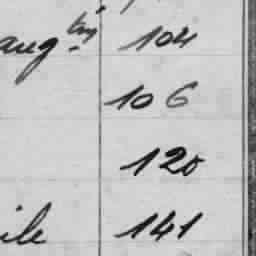 augtin 104
106
120
ile 141